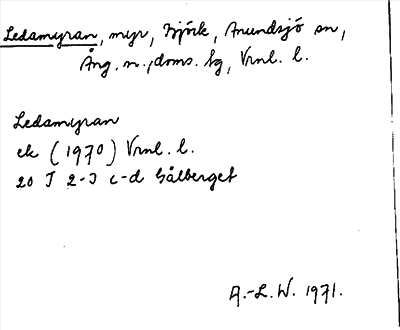 Ledamyran, myr, Björk, Anundsjö sn,
Ång. n., doms. hg, Vrnl. l.
Ledamyran
ek (1970) Vrnl. l.
20 J 2-3 c-d Gålberget
A.-L. W. 1971.